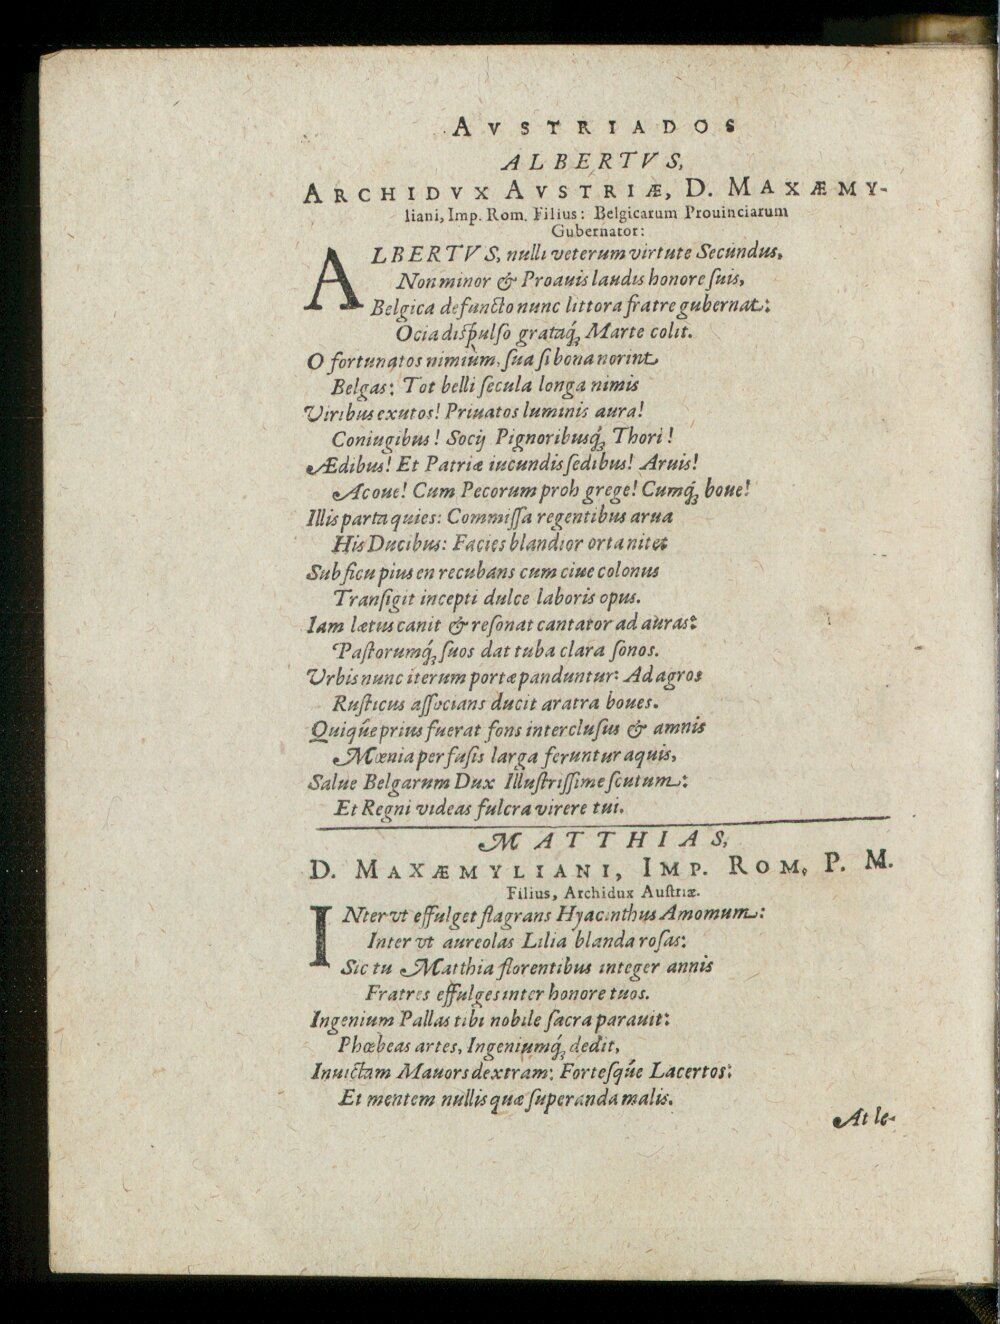 AVSTRIADOS
ALBERTVS,
ARCHIDVX AVSTRIÆ, D. MAXÆMY-
liani, Imp. Rom. Filius: Belgicarum Prouinciarum
Gubernator:
ALBERTVS, nulli veterum virtute Secundus,
Non minor & Proauis laudis honore ſuis,
Belgica defuncto nunc littora fratre gubernat:
Ocia diſpulſo grataq́ꝫ Marte colit.
O fortunatos nimiùm, ſua ſi bona norint
Belgas: Tot belli ſecula longa nimis
Viribus exutos! Priuatos luminis aura!
Coniugibus! Socij Pignoribusq́ꝫ Thori!
Ædibus! Et Patriæ iucundis ſedibus! Aruis!
Ac oue! Cum Pecorum proh grege! Cumq́ꝫ boue!
Illis parta quies: Commiſſa regentibus arua
His Ducibus: Facies blandior orta nitet
Sub ficu pius en recubans cum ciue colonus
Tranſigit incepti dulce laboris opus.
Iam lætus canit & reſonat cantator ad auras:
Paſtorumq́ꝫ ſuos dat tuba clara ſonos.
Vrbis nunc iterum portæ panduntur: Ad agros
Ruſticus aſſocians ducit aratra boues.
Quiq́ue prius fuerat fons intercluſus & amnis
Mœnia perfuſis larga feruntur aquis,
Salue Belgarum Dux Illuſtriſſime ſcutum:
Et Regni videas fulcra virere tui.
MATTHIAS,
D. MAXÆMYLIANI, IMP. ROM, P. M.
Filius, Archidux Auſtriæ.
INter vt effulget flagrans Hyacinthus Amomum:
Inter vt aureolas Lilia blanda roſas:
Sic tu Matthia florentibus integer annis
Fratres effulges inter honore tuos.
Ingenium Pallas tibi nobile ſacra parauit:
Phœbeas artes, Ingeniumq́ꝫ dedit,
Inuictam Mauors dextram: Forteſq́ue Lacertos:
Et mentem nullis quæ ſuperanda malis.
At le-